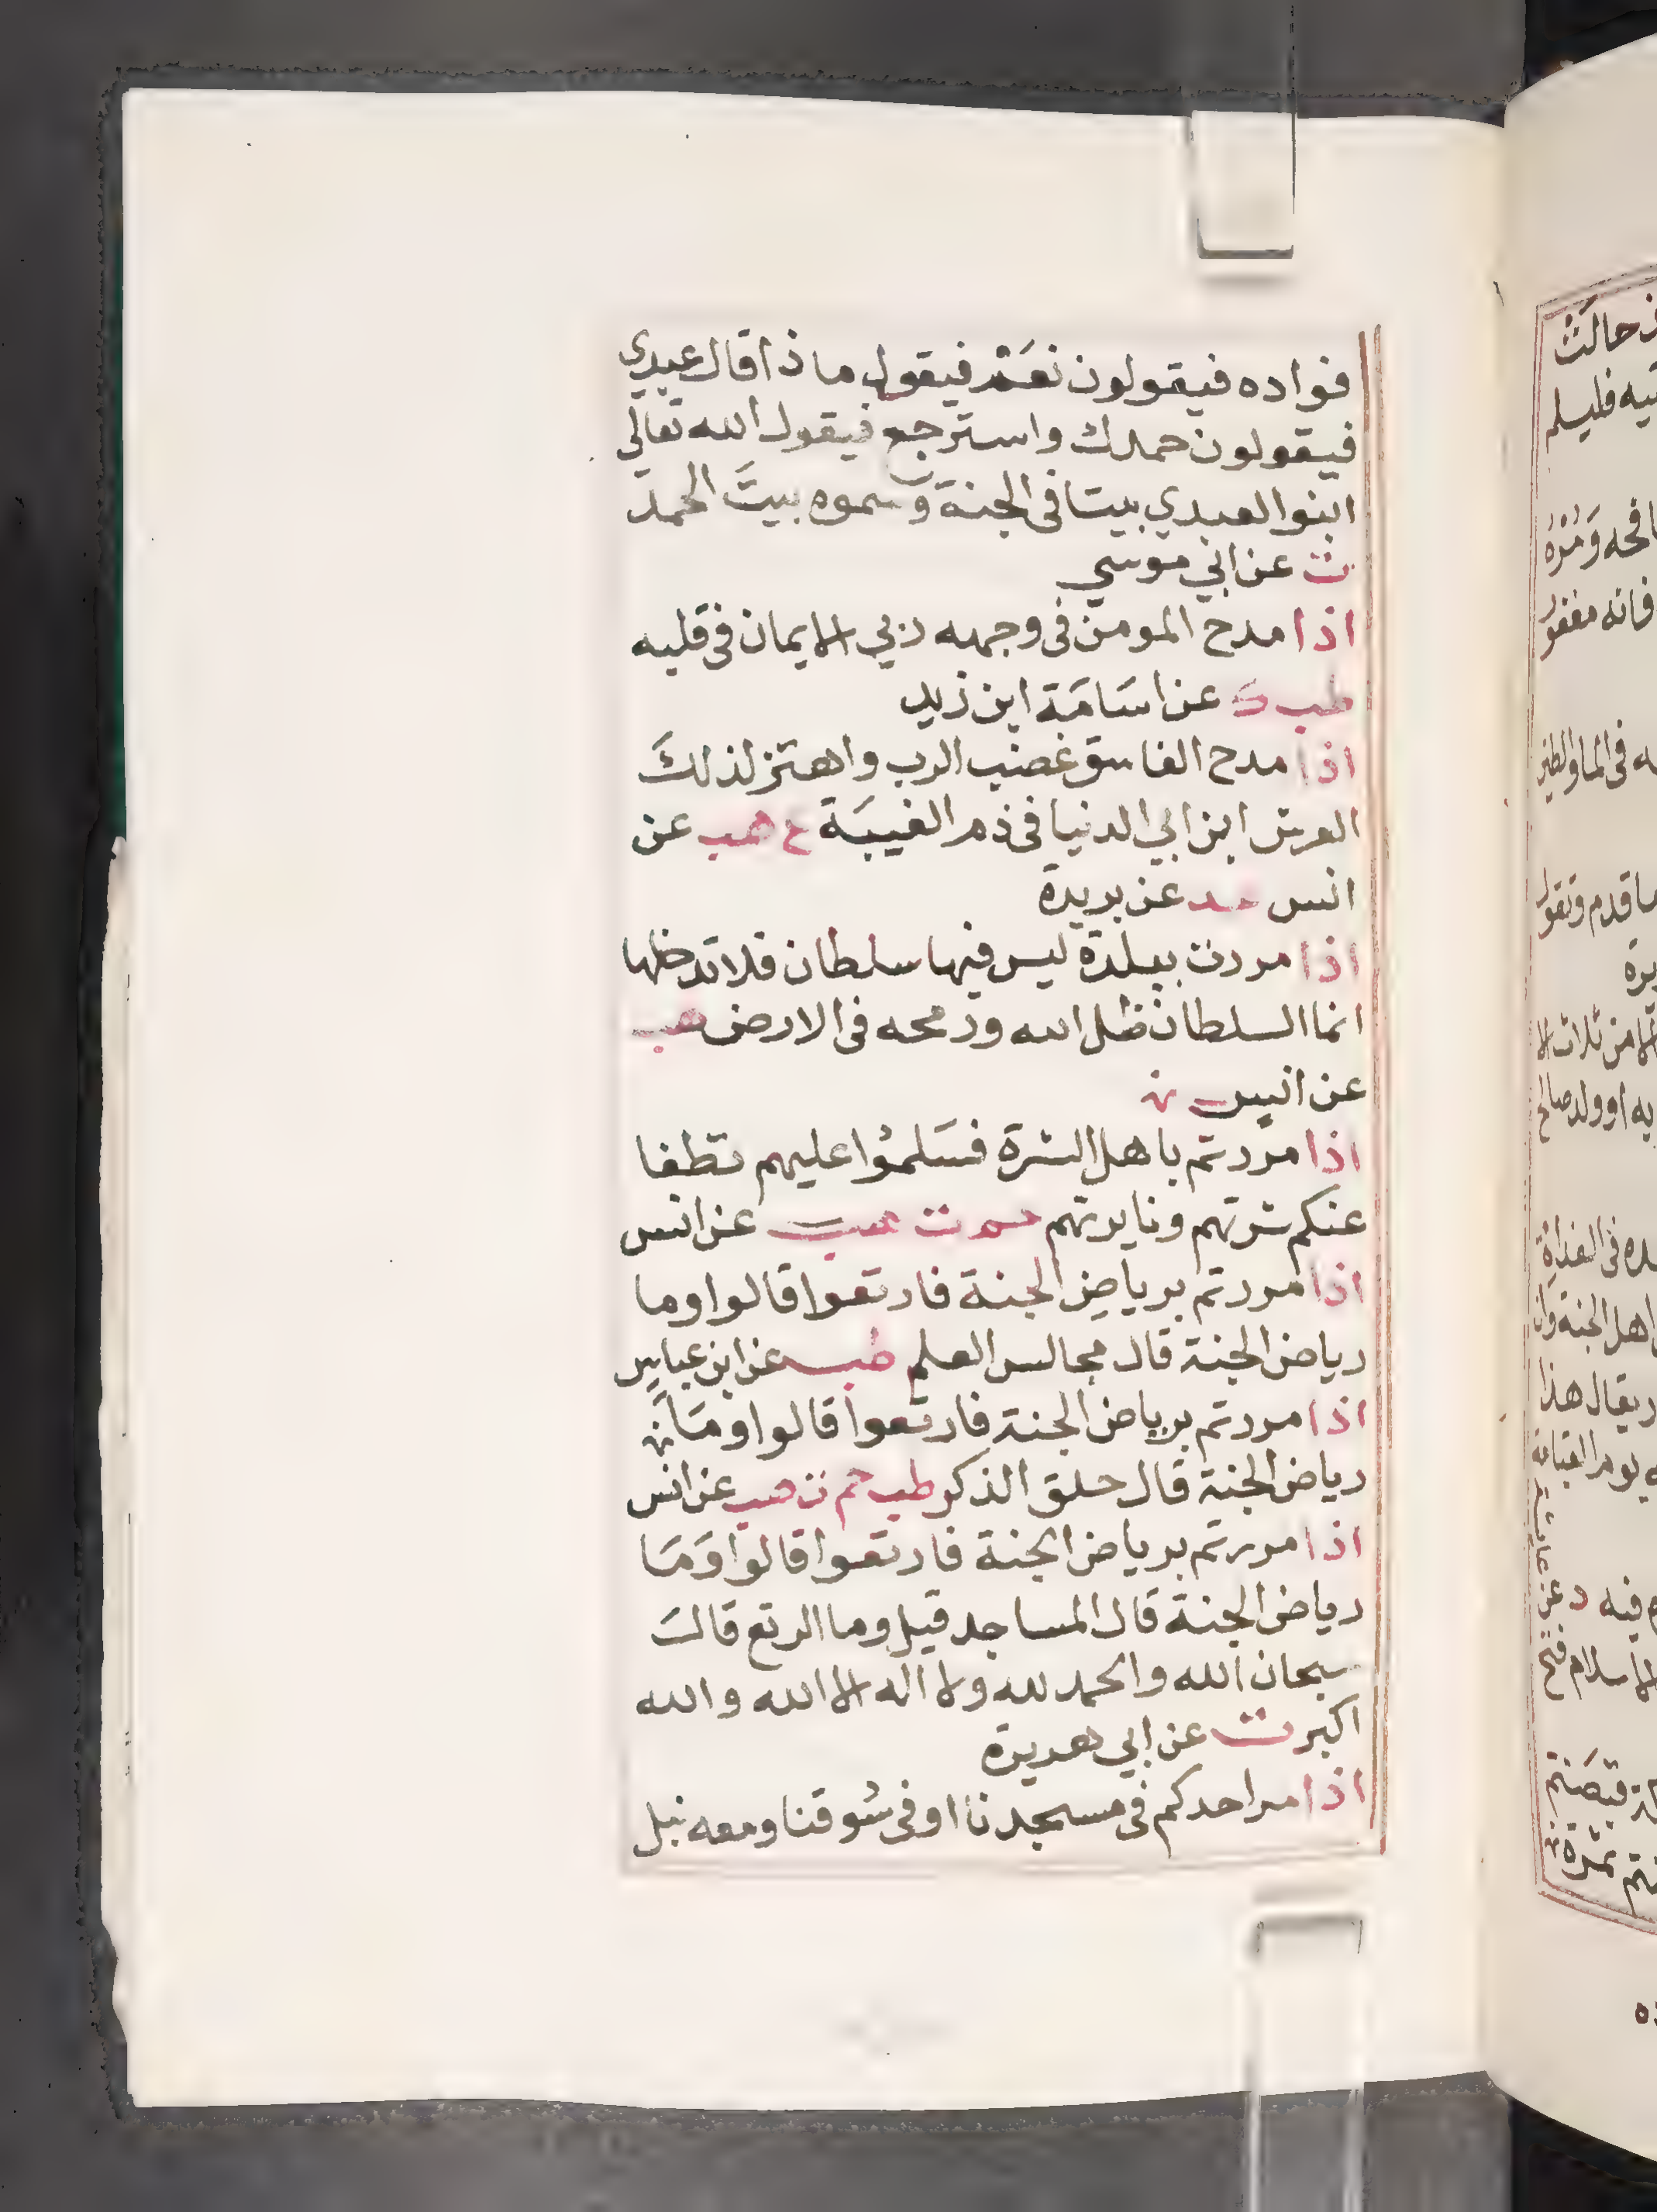 فواده فيقولون نعَمْ فيقول ماذا قال عبدي
فيقولون حمدك واسترجع فيقول الله تعالي
ابنوا لعبدي بيتا في الجنة وسموه بيتَ الحمد
ت عن ابي موسي
اذا مدح المومن في وجهه ربي الايمان في قلبه
طب ك عن اسَامَة ابن زيد
اذا مدح الفاسق غضب الرب واهتز لذلكَ
العرش ابن ابي الدنيا في ذم الغيبَة ع هب عن
انس عد عن بريدة
اذا مررت ببلدة ليس فيها سلطان فلا تدخلها
انما السلطان ظل الله ورمحه في الارض هب
عن انس
اذا مررتم باهل الشرة فسَلمُوا عليهم تطفا
عنكم شرتهم ونايرتهم حم ت هب عن انس
اذا مررتم برياض الجنة فارتعوا قالوا وما
رياض الجنة قال مجالس العلم طب عن ابن عباس
اذا مررتم برياض الجنة فارتعوا قالوا ومَا
رياض الجنة قال حلق الذكر طب حم ت هب عن انس
اذا مررتم برياض الجنة فارتعوا قالوا وَمَا
رياض الجنة قال المساجد قيل وما الرتع قالَ
سبحان الله والحمد لله ولا اله الا الله والله
اكبر ت عن ابي هريرة
اذا مر احدكم في مسجدنا او في سُوقنا ومعه نبل
حالَتْ
فليسلم
وَمُرْهُ
فانه مغفور
في الما والطين
ما قدم وتقول
من ثلاث الا
او ولد صالح
في الغداة
اهل الجنة
يقال هذا
يوم القيامة
فيه د عن عايشة
الاسلام فتح
قبضتم
تمرة